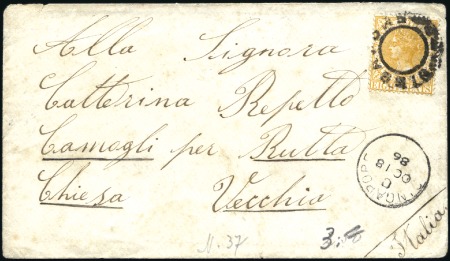 Alla Signora
Catterina Repetto
Camogli per Rutta
Chiesa Vecchia
Italia
SINGAPORE
D
OC 18
86
N. 37